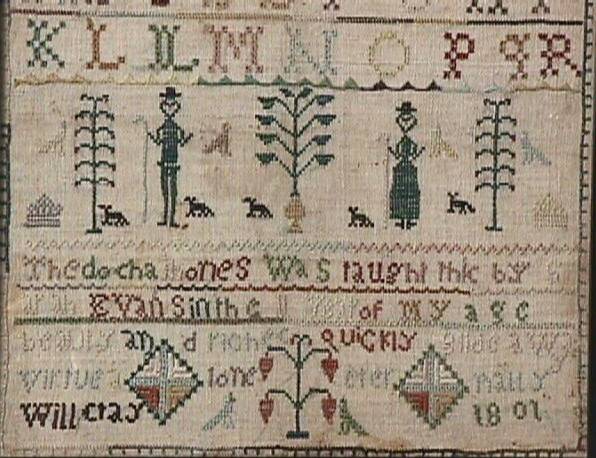 K L IL M N O P q R
Thedocha Jhones Was taught this by S
arah Evans in the 11 year of my age
beauty and riches quickly glide away
virtue alone eter nally
Will stay 1801